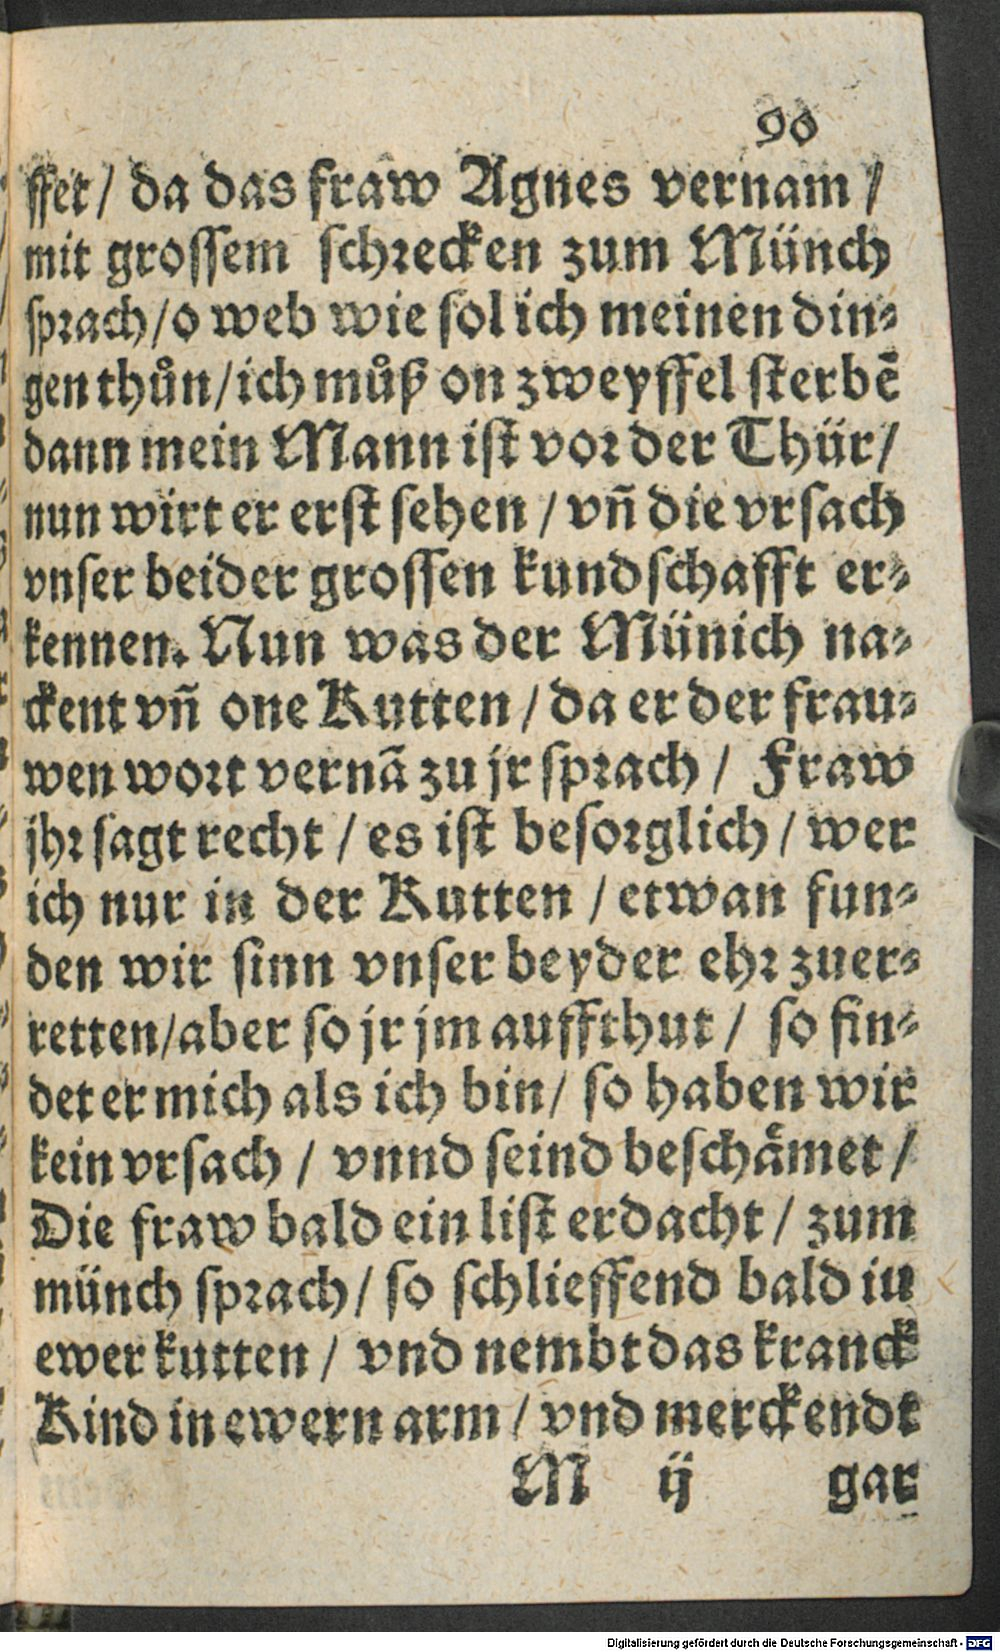 90
ffet / da das fraw Agnes vernam /
mit grossem schrecken zum Münch
sprach / o weh wie sol ich meinen din⸗
gen thuͦn / ich muͦß on zweyffel sterbē
dann mein Mann ist vor der Thür /
nun wirt er erst sehen / vñ die vrsach
vnser beider grossen kundschafft er⸗
kennen. Nun was der Münich na⸗
ckent vñ one Kutten / da er der frau⸗
wen wort vernã zu jr sprach / Fraw
jhr sagt recht / es ist besorglich / wer
ich nur in der Kutten / etwan fun⸗
den wir sinn vnser beyder ehr zuer⸗
retten / aber so jr jm auffthut / so fin⸗
det er mich als ich bin / so haben wir
kein vrsach / vnnd seind beschämet /
Die fraw bald ein list erdacht / zum
münch sprach / so schlieffend bald in
ewer kutten / vnd nembt das kranck
Kind in ewern arm / vnd merckendt
M ij gar
Digitalisierung gefördert durch die Deutsche Forschungsgemeinschaft - DFG